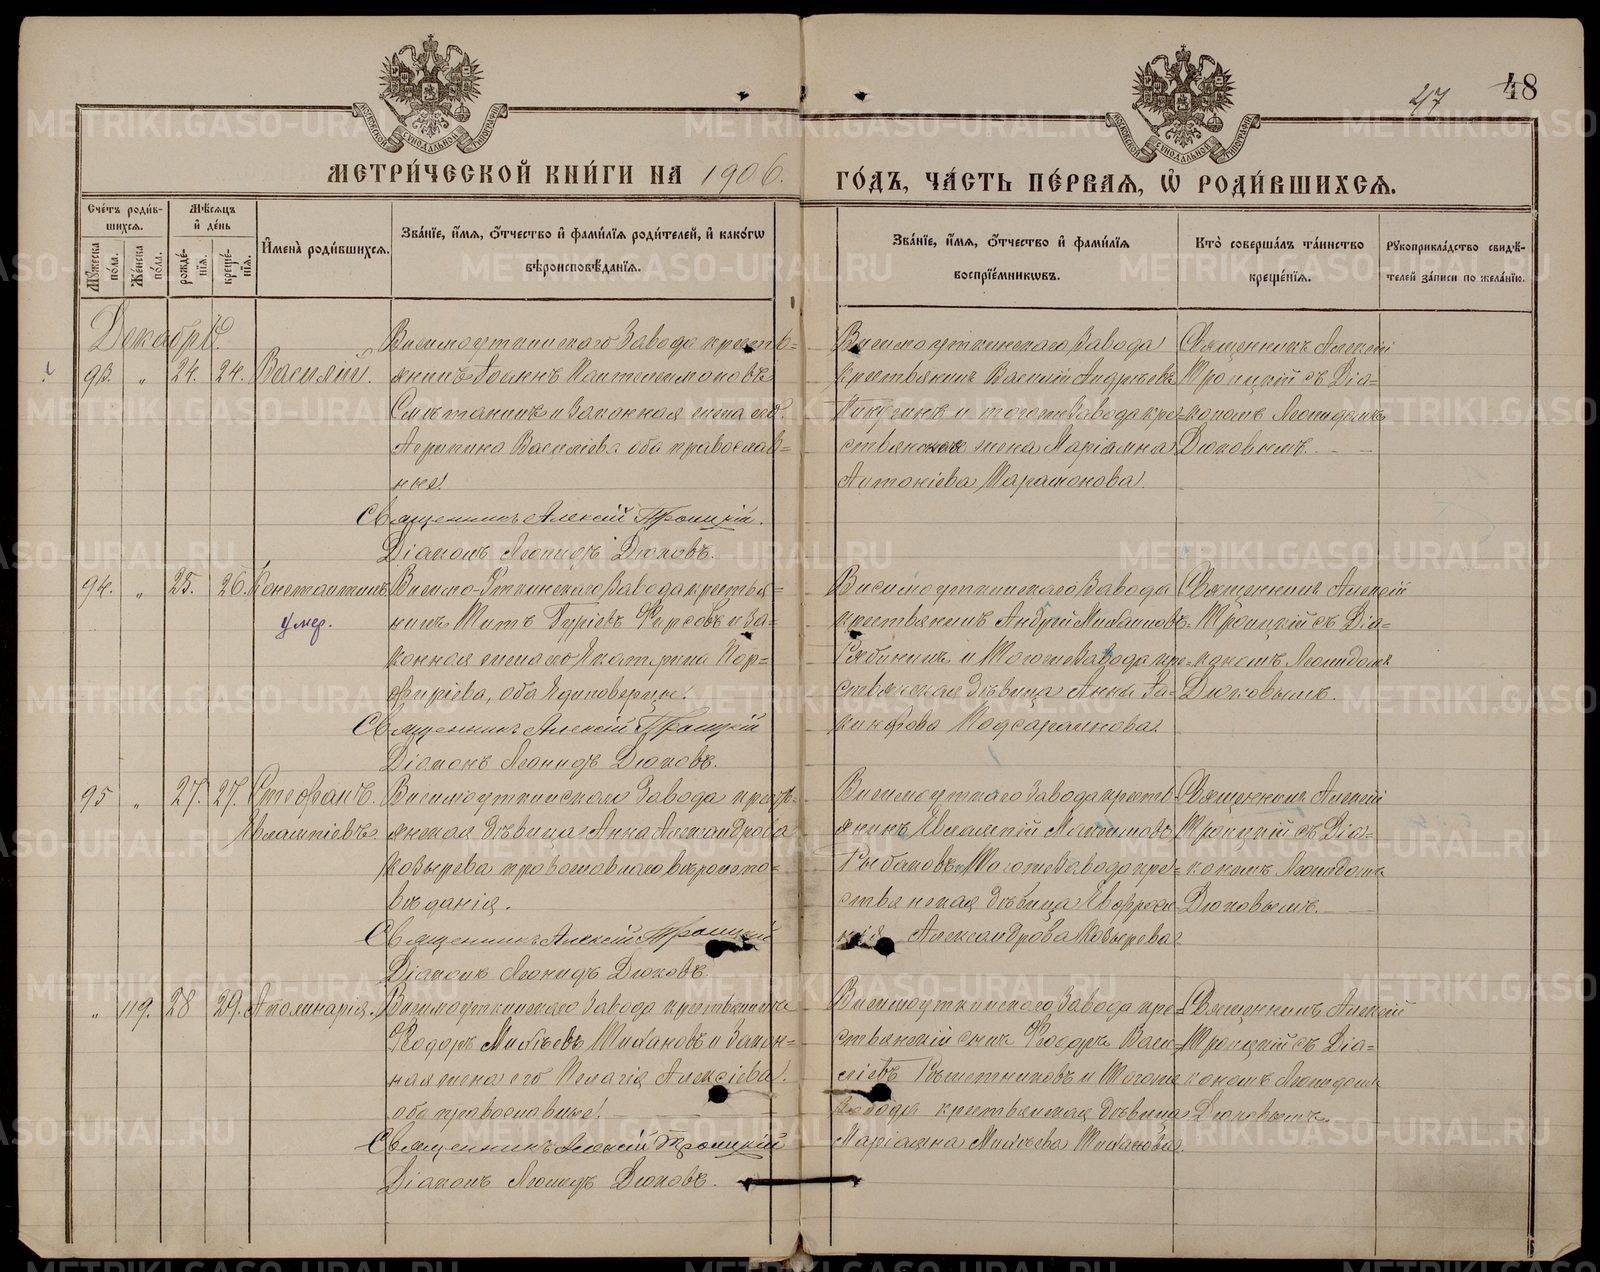 47 48
МЕТРИ́ЧЕСКОЙ КНИ́ГИ НА 1906. ГО́ДЪ, ЧА́СТЬ ПЕ́РВАЯ, Ѽ РОДИ́ВШИХСЯ.
Сче́тъ роди́вшихся.
Мꙋ́жеска по́ла.
Же́нска по́ла.
Мѣ́сяцъ и҆ де́нь
рожде́нїя.
креще́нїя.
И҆мена̀ роди́вшихся.
Зва́нїе, и҆́мя, ѻ҆́тчество и҆ фами́лїя роди́телей, и҆ како́гѡ
вѣроисповѣ́данїя.
Зва́нїе, и҆́мя, ѻ҆́тчество и҆ фами́лїя
воспрїе́мникѡвъ.
Кто̀ соверша́лъ та́инство
креще́нїя.
Рꙋкоприкла́дство свидѣ́-
телей за́писи по жела́нїю.
Декабрь.
93. „ 24. 24. Василій.
Висимоуткинскаго Завода кресть=
янинъ Іоаннъ Пантелеимоновъ
Сметанинъ и законная жена его
Агрипина Василіева оба православ=
ные.
Священникъ Алексій Троицкій.
Діаконъ Леонидъ Дюковъ.
Висимоуткинскаго Завода
крестьянинъ Василій Андреевъ
и тогоже Завода кре=
стьянская жена Маріамна
Антоніева Парамонова.
Священникъ Алексій
Троицкій съ Діа=
кономъ Леонидомъ
Дюковымъ.
94. „ 25. 26. Константинъ
умер.
Висимо-Уткинскаго Завода крестья=
нинъ Титъ Гуріевъ Фирсовъ и за=
конная жена его Екатерина Пор=
фиріева, оба Единоверцы.
Священникъ Алексій Троицкій
Діаконъ Леонидъ Дюковъ.
Висимоуткинскаго Завода
крестьянинъ Андрей Михаиловъ
Рябининъ и Тогоже Завода кре=
стьянская девица Анна Іа=
кинфова
Священникъ Алексій
Троицкій съ Діа=
кономъ Леонидомъ
Дюковымъ.
95 „ 27. 27. Стефанъ.
Евлампіевъ.
Висимоуткинскаго Завода кресть=
янская девица Анна Александрова
Козырева православнаго вероиспо=
веданія.
Священникъ Алексій Троицкій
Діаконъ Леонидъ Дюковъ.
Висимоуткаго Завода кресть=
янинъ Евлампій Максимовъ
Рыбаковъ и Тогоже Завода кре=
стьянская девица Евфроси=
нія Александрова Козырева.
Священникъ Алексій
Троицкій съ Діа=
кономъ Леонидомъ
Дюковымъ.
„ 119. 28 29. Аполинарія.
Висимоуткинскаго Завода крестьянинъ
Феодоръ Михеевъ Тихановъ и закон=
ная жена его Пелагія Алексіева.
оба православные.
Священникъ Алексій Троицкій
Діаконъ Леонидъ Дюковъ.
Висимоуткинскаго Завода кре=
стьянскій сынъ Феодоръ Васи=
ліевъ Решетниковъ и Тогоже
Завода крестьянская девица
Маріамна Михеева Тиханова.
Священникъ Алексій
Троицкій съ Діа=
кономъ Леонидомъ
Дюковымъ.
METRIKI.GASO-URAL.RU